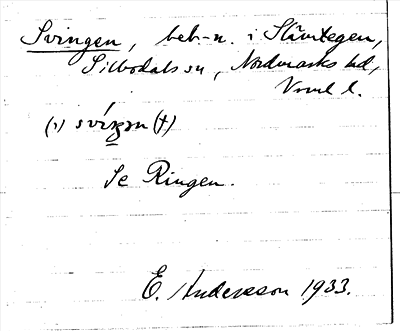 Svingen, beb-n. i Slämtegen,
Silbodals sn, Nordmarks hd,
Vrml l.
(1) svíŋən (†)
Se Ringen.
E. Andersson 1933.